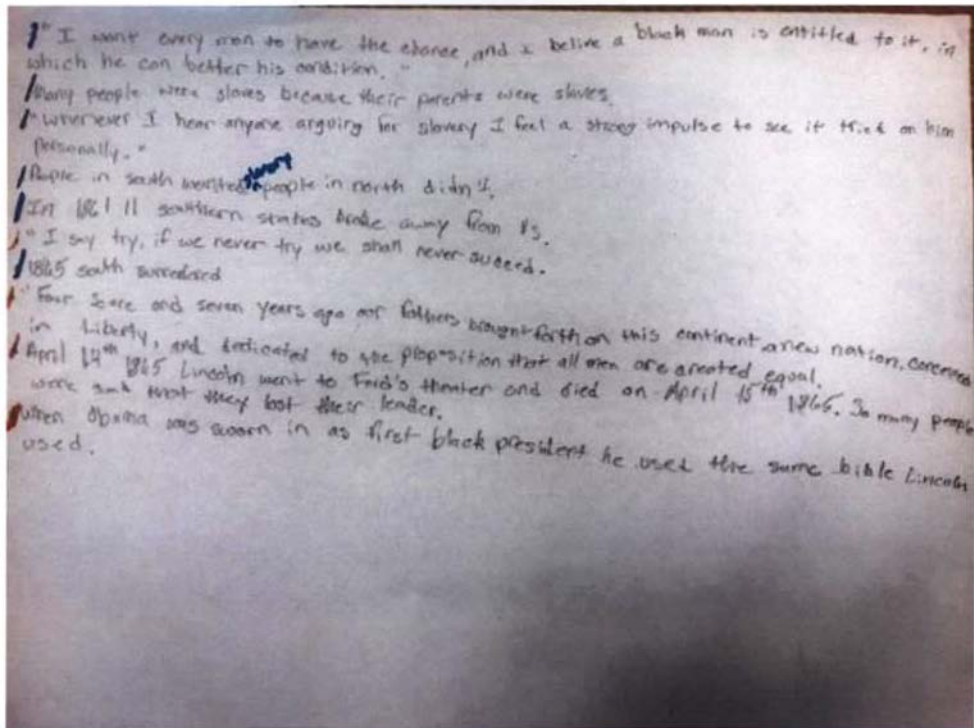 " I want every man to have the chance, and I belive a black man is entitled to it, in
which he can better his condition. "
Many people were slaves because their parents were slaves.
" Whenever I hear anyone arguing for slavery I feel a strong impulse to see it tried on him
personally. "
People in south wanted slavery people in north didn't.
In 1861 11 southern states broke away from US.
" I say try, if we never try we shall never succeed.
1865 south surrendered
" Four score and seven years ago our fathers brought forth on this continent a new nation, conceived
in Liberty, and dedicated to the proposition that all men are created equal.
April 14th 1865 Lincoln went to Ford's theater and died on April 15th 1865. So many people
were sad that they lost their leader.
When Obama was sworn in as first black president he used the same bible Lincoln
used.